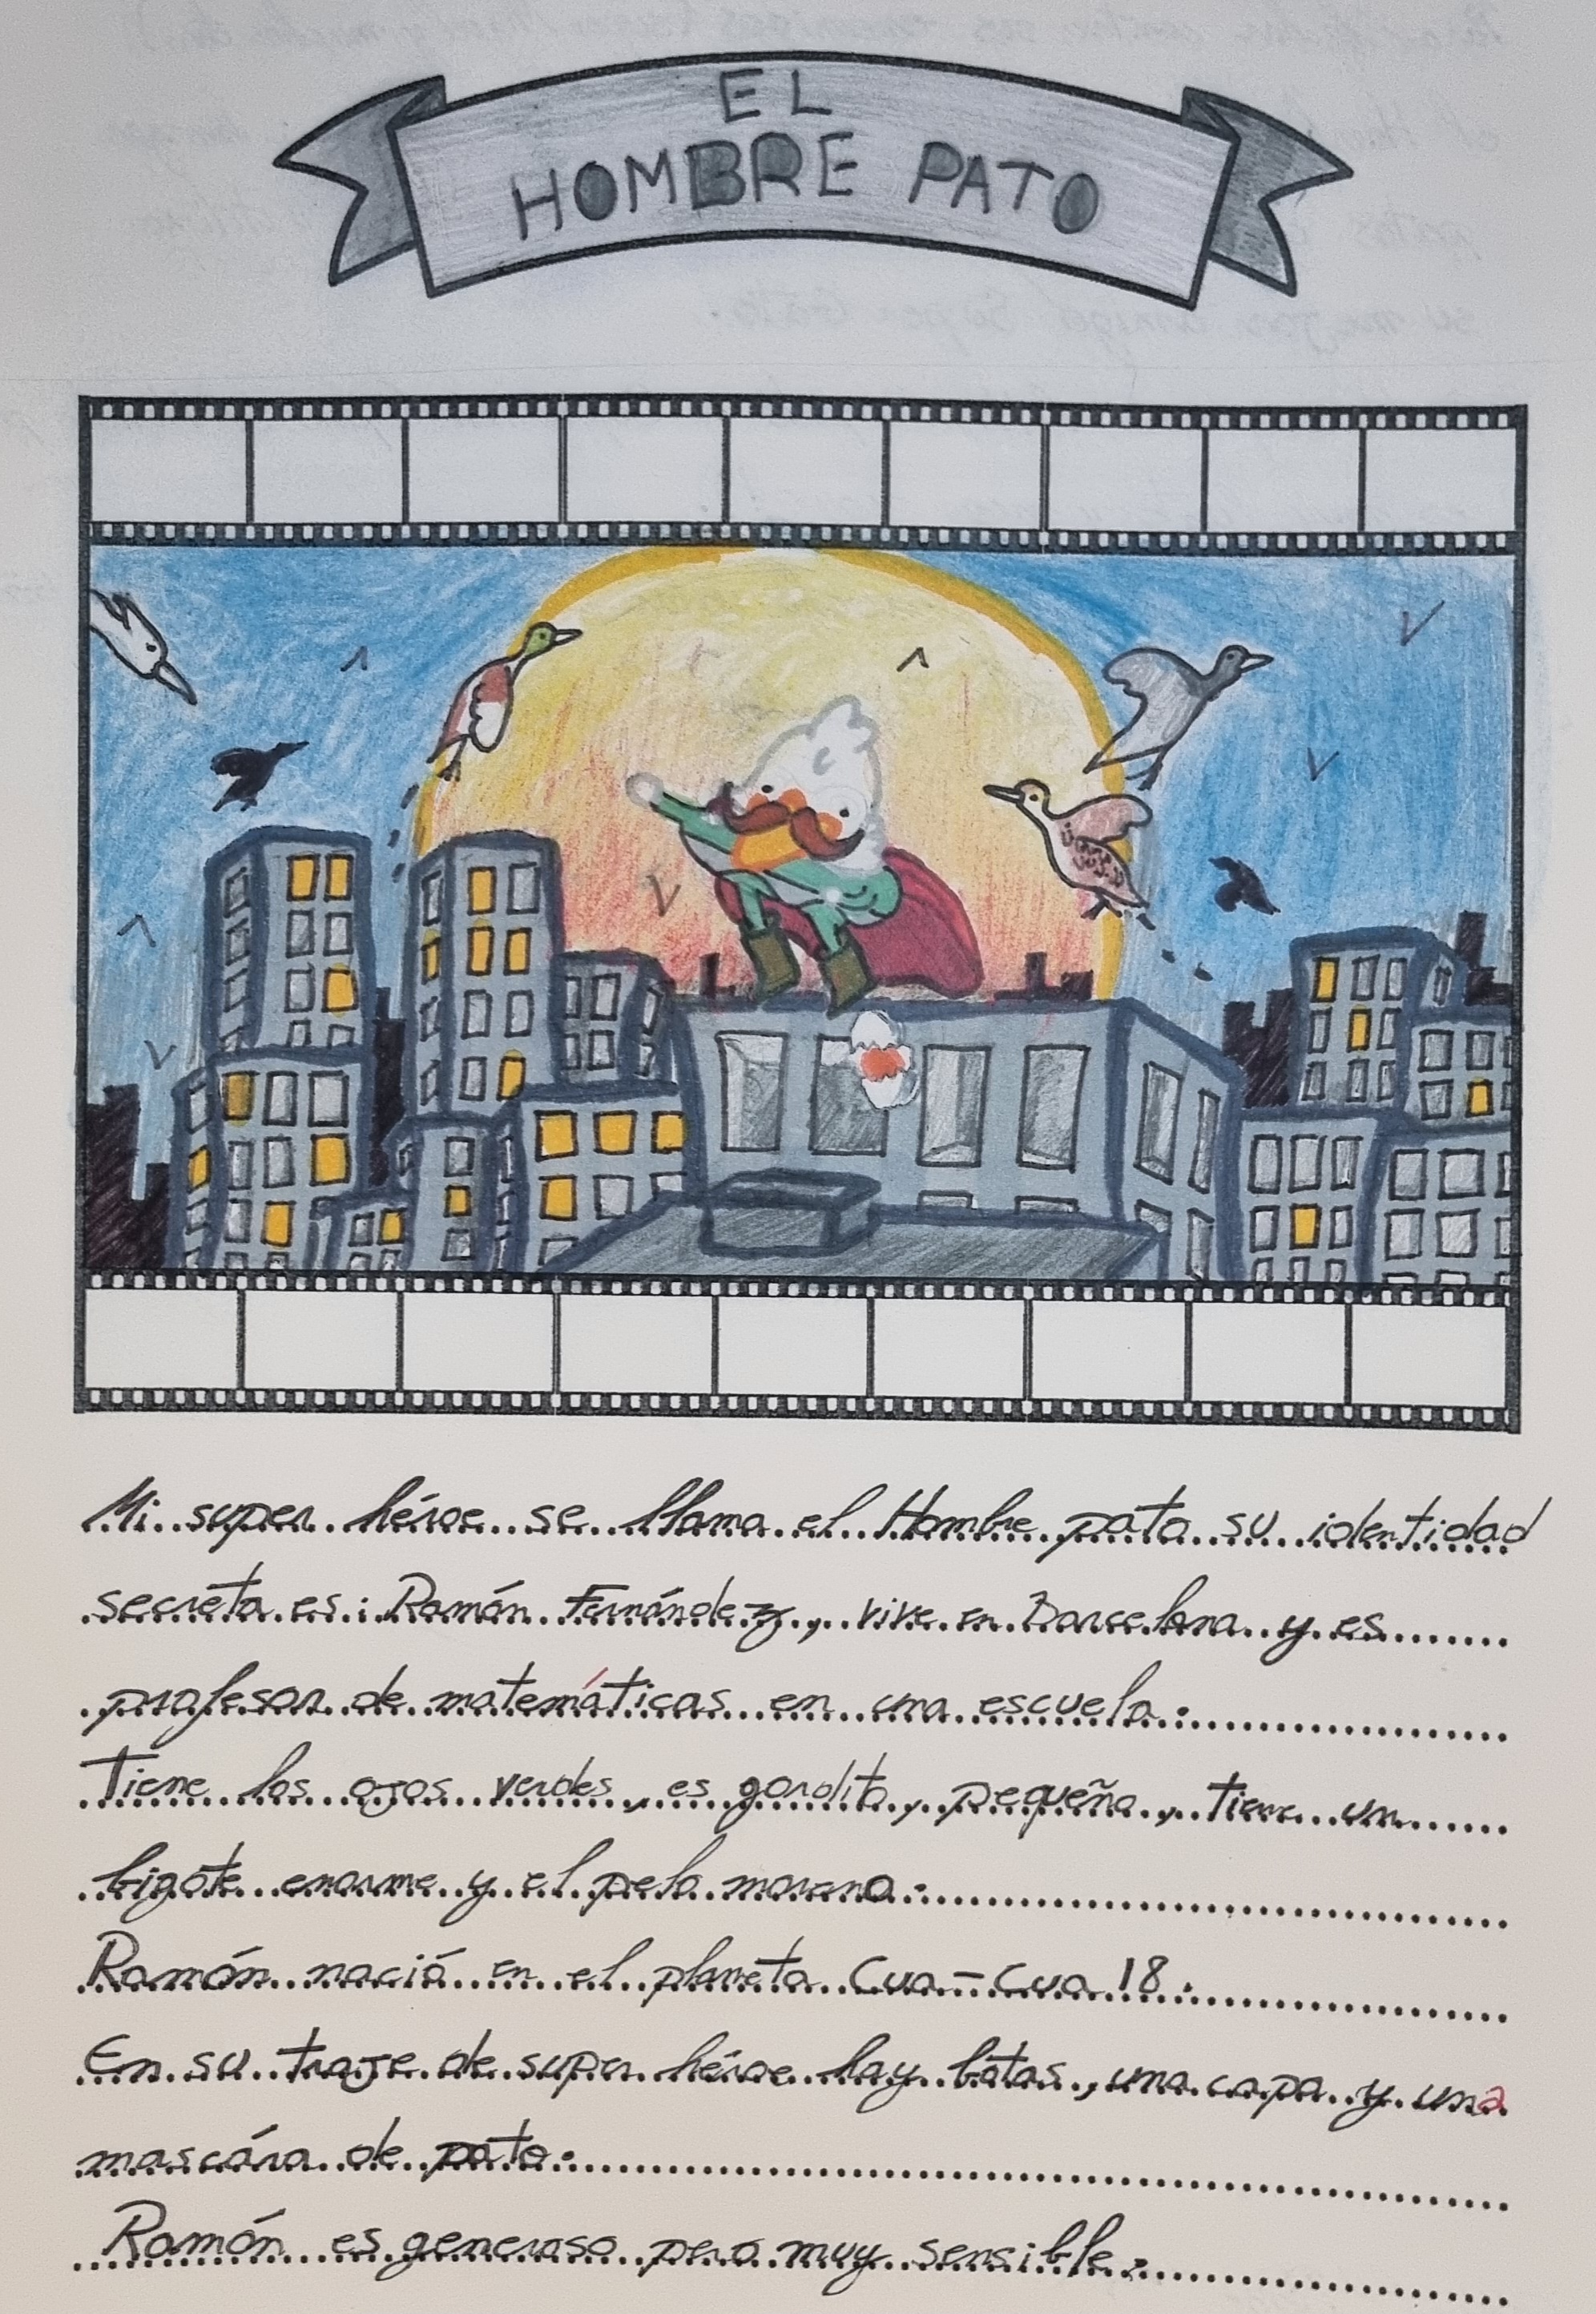 EL
HOMBRE PATO
Mi super héroe se llama el Hombre pato su identidad
secreta es : Ramón Fernández, vive en Barcelona y es
profesor de matemáticas en una escuela.
Tiene los ojos verdes, es gordito, pequeño, tiene un
bigote enorme y el pelo moreno.
Ramón nació en el planeta Cua-Cua 18.
En su traje de super héroe hay botas, una capa y una
mascára de pato.
Ramón es generoso pero muy sensible.